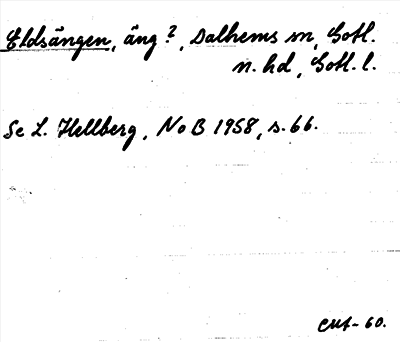 Eldsängen, äng?, Dalhems sn, Gotl.
n. hd, Gotl. l.
Se L. Hellberg, NoB 1958, s. 66.
CMt-60.